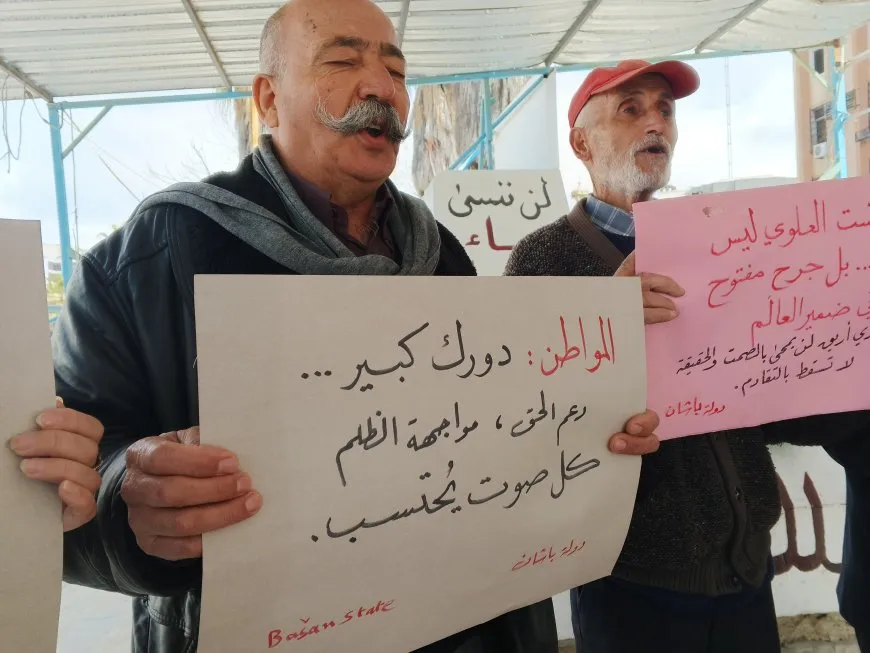 لن ننسى
المواطن: دورك كبير ...
دعم الحق ، مواجهة الظلم
كل صوت يُحتسب.
دولة باشان
Bašan state
العلوي ليس
... بل جرح مفتوح
ضمير العالم
أريق لن يمحى بالصمت والحقيقة
لا تسقط بالتقادم.
دولة باشان